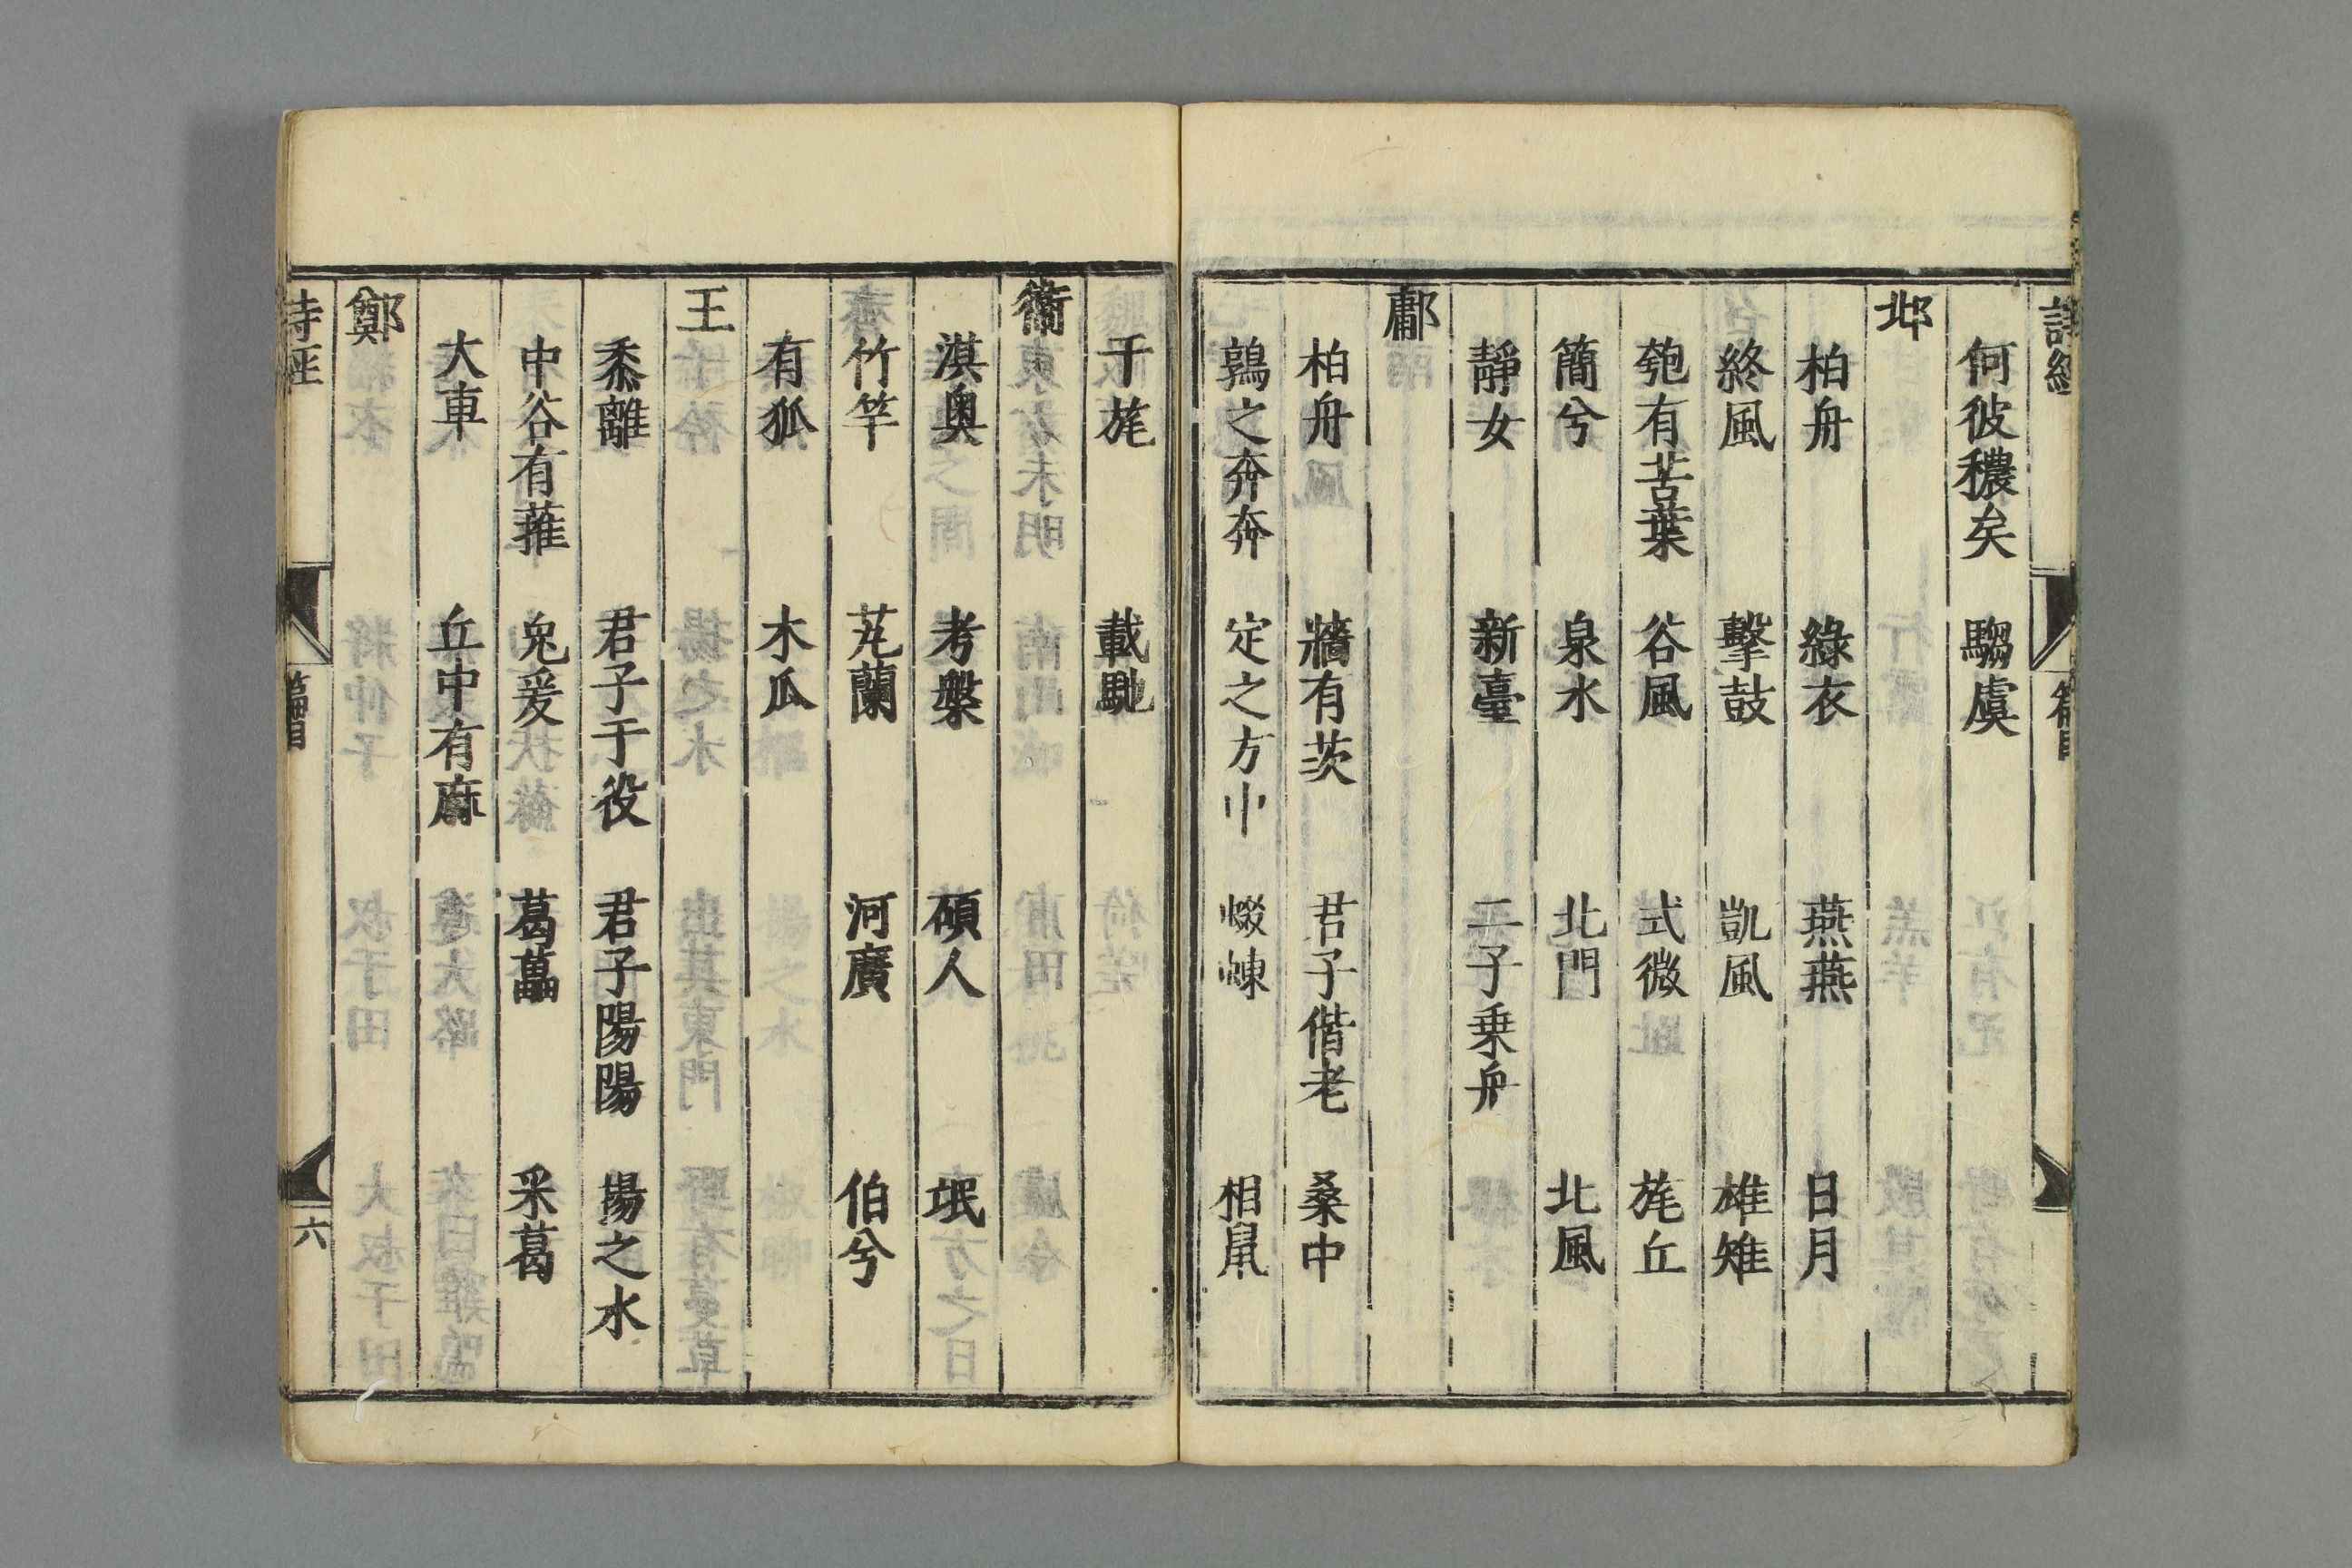 詩經 篇目
何彼穠矣 騶虞
邶
柏舟 綠衣 燕燕 日月
終風 擊鼓 凱風 雄雉
匏有苦葉 谷風 式微 旄丘
簡兮 泉水 北門 北風
靜女 新臺 二子乗舟
鄘
柏舟 牆有茨 君子偕老 桑中
鶉之奔奔 定之方中 蝃蝀 相鼠
干旄 載馳
衛
淇奧 考槃 碩人 氓
竹竿 芄蘭 河廣 伯兮
有狐 木瓜
王
黍離 君子于役 君子陽陽 揚之水
中谷有蓷 兔爰 葛藟 采葛
大車 丘中有麻
鄭
詩經 篇目 六